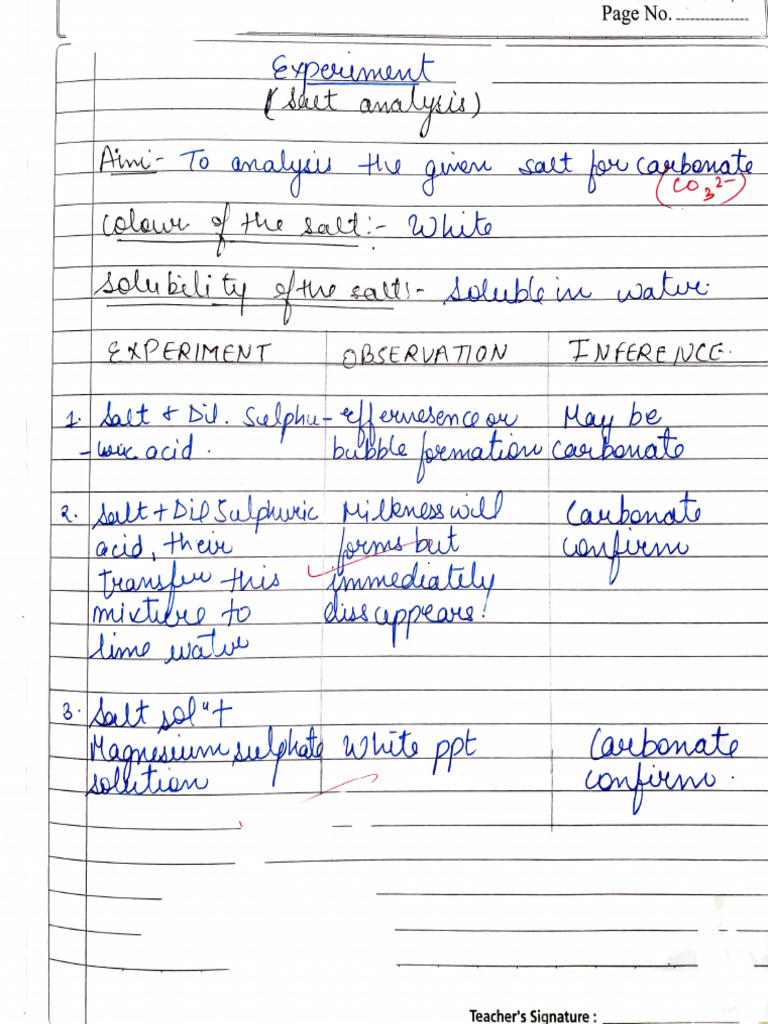 Page No.
Experiment
(Salt analysis)
Aim:- To analysis the given salt for carbonate
CO₃²⁻
Colour of the salt:- White
Solubility of the salt:- Soluble in water.
EXPERIMENT OBSERVATION INFERENCE.
1. Salt + Dil. Sulphu- effervesence or May be
-uric acid. bubble formation carbonate
2. Salt + Dil Sulphuric Milkness will Carbonate
acid, their forms but confirm
transfer this immediately
mixture to dissappears!
lime water
3. Salt solⁿ +
Magnesium sulphate White ppt Carbonate
solution confirm.
Teacher's Signature :